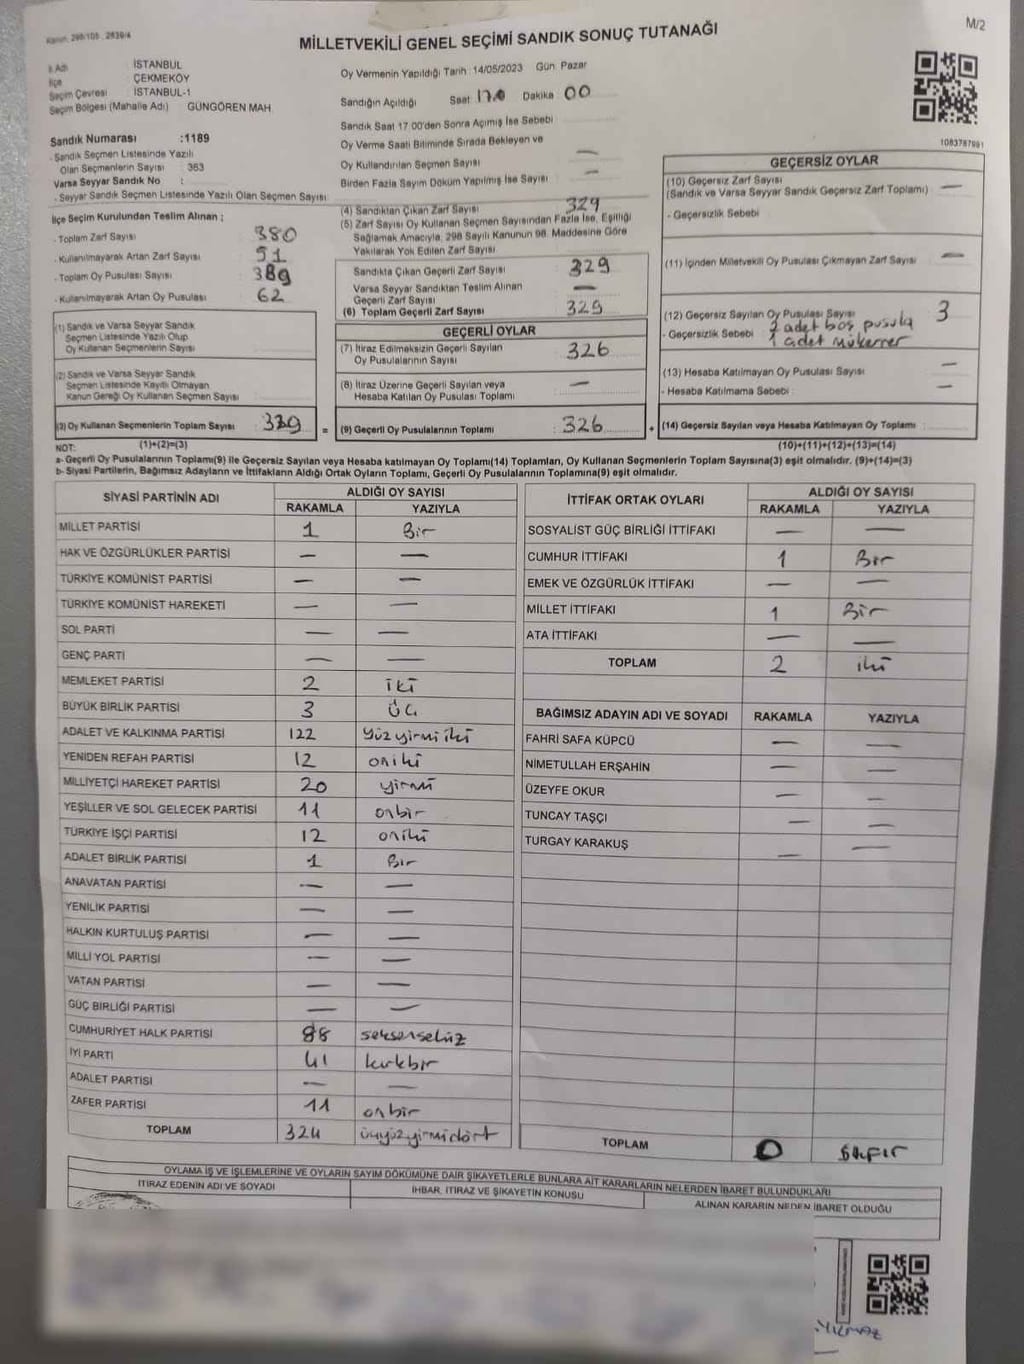 Kanun: 298/105 , 2839/4
M/2
MİLLETVEKİLİ GENEL SEÇİMİ SANDIK SONUÇ TUTANAĞI
İl Adı İSTANBUL
İlçe ÇEKMEKÖY
Seçim Çevresi İSTANBUL-1
Seçim Bölgesi (Mahalle Adı) GÜNGÖREN MAH.
Sandık Numarası :1189
- Sandık Seçmen Listesinde Yazılı
Olan Seçmenlerin Sayısı : 363
Varsa Seyyar Sandık No :
- Seyyar Sandık Seçmen Listesinde Yazılı Olan Seçmen Sayısı
İlçe Seçim Kurulundan Teslim Alınan ;
- Toplam Zarf Sayısı 380
- Kullanılmayarak Artan Zarf Sayısı 51
- Toplam Oy Pusulası Sayısı 389
- Kullanılmayarak Artan Oy Pusulası 62
(1) Sandık ve Varsa Seyyar Sandık
Seçmen Listesinde Yazılı Olup
Oy Kullanan Seçmenlerin Sayısı
(2) Sandık ve Varsa Seyyar Sandık
Seçmen Listesinde Kayıtlı Olmayan
Kanun Gereği Oy Kullanan Seçmen Sayısı
(3) Oy Kullanan Seçmenlerin Toplam Sayısı : 329 =
Oy Vermenin Yapıldığı Tarih :14/05/2023 Gün: Pazar
Sandığın Açıldığı Saat 17.0 Dakika 00
Sandık Saat 17:00'den Sonra Açılmış İse Sebebi
Oy Verme Saati Bitiminde Sırada Bekleyen ve
Oy Kullandırılan Seçmen Sayısı —
Birden Fazla Sayım Döküm Yapılmış İse Sayısı —
(4) Sandıktan Çıkan Zarf Sayısı 329
(5) Zarf Sayısı Oy Kullanan Seçmen Sayısından Fazla İse, Eşitliği
Sağlamak Amacıyla, 298 Sayılı Kanunun 98. Maddesine Göre
Yakılarak Yok Edilen Zarf Sayısı
Sandıkta Çıkan Geçerli Zarf Sayısı 329
Varsa Seyyar Sandıktan Teslim Alınan
Geçerli Zarf Sayısı —
(6) Toplam Geçerli Zarf Sayısı 329
GEÇERLİ OYLAR
(7) İtiraz Edilmeksizin Geçerli Sayılan
Oy Pusulalarının Sayısı 326
(8) İtiraz Üzerine Geçerli Sayılan veya
Hesaba Katılan Oy Pusulası Toplamı —
(9) Geçerli Oy Pusulalarının Toplamı : 326 +
1083787991
GEÇERSİZ OYLAR
(10) Geçersiz Zarf Sayısı
(Sandık ve Varsa Seyyar Sandık Geçersiz Zarf Toplamı) —
- Geçersizlik Sebebi
(11) İçinden Milletvekili Oy Pusulası Çıkmayan Zarf Sayısı —
(12) Geçersiz Sayılan Oy Pusulası Sayısı 3
- Geçersizlik Sebebi 2 adet boş pusula
1 adet mükerrer
(13) Hesaba Katılmayan Oy Pusulası Sayısı —
- Hesaba Katılmama Sebebi : —
(14) Geçersiz Sayılan veya Hesaba Katılmayan Oy Toplamı :
NOT: (1)+(2)=(3) (10)+(11)+(12)+(13)=(14)
a- Geçerli Oy Pusulalarının Toplamı(9) ile Geçersiz Sayılan veya Hesaba katılmayan Oy Toplamı(14) Toplamları, Oy Kullanan Seçmenlerin Toplam Sayısına(3) eşit olmalıdır. (9)+(14)=(3)
b- Siyasi Partilerin, Bağımsız Adayların ve İttifakların Aldığı Ortak Oyların Toplamı, Geçerli Oy Pusulalarının Toplamına(9) eşit olmalıdır.
SİYASİ PARTİNİN ADI ALDIĞI OY SAYISI
RAKAMLA YAZIYLA
MİLLET PARTİSİ 1 Bir
HAK VE ÖZGÜRLÜKLER PARTİSİ — —
TÜRKİYE KOMÜNİST PARTİSİ — —
TÜRKİYE KOMÜNİST HAREKETİ — —
SOL PARTİ — —
GENÇ PARTİ — —
MEMLEKET PARTİSİ 2 iki
BÜYÜK BİRLİK PARTİSİ 3 üç
ADALET VE KALKINMA PARTİSİ 122 yüzyirmiiki
YENİDEN REFAH PARTİSİ 12 oniki
MİLLİYETÇİ HAREKET PARTİSİ 20 yirmi
YEŞİLLER VE SOL GELECEK PARTİSİ 11 onbir
TÜRKİYE İŞÇİ PARTİSİ 12 oniki
ADALET BİRLİK PARTİSİ 1 Bir
ANAVATAN PARTİSİ — —
YENİLİK PARTİSİ — —
HALKIN KURTULUŞ PARTİSİ — —
MİLLİ YOL PARTİSİ — —
VATAN PARTİSİ — —
GÜÇ BİRLİĞİ PARTİSİ — —
CUMHURİYET HALK PARTİSİ 88 seksensekiz
İYİ PARTİ 41 kırkbir
ADALET PARTİSİ — —
ZAFER PARTİSİ 11 onbir
TOPLAM 324 üçyüzyirmidört
İTTİFAK ORTAK OYLARI ALDIĞI OY SAYISI
RAKAMLA YAZIYLA
SOSYALİST GÜÇ BİRLİĞİ İTTİFAKI — —
CUMHUR İTTİFAKI 1 Bir
EMEK VE ÖZGÜRLÜK İTTİFAKI — —
MİLLET İTTİFAKI 1 Bir
ATA İTTİFAKI — —
TOPLAM 2 iki
BAĞIMSIZ ADAYIN ADI VE SOYADI RAKAMLA YAZIYLA
FAHRİ SAFA KÜPCÜ — —
NİMETULLAH ERŞAHİN — —
ÜZEYFE OKUR — —
TUNCAY TAŞÇI — —
TURGAY KARAKUŞ — —
TOPLAM 0 Sıfır
OYLAMA İŞ VE İŞLEMLERİNE VE OYLARIN SAYIM DÖKÜMÜNE DAİR ŞİKAYETLERLE BUNLARA AİT KARARLARIN NELERDEN İBARET BULUNDUKLARI
İTİRAZ EDENİN ADI VE SOYADI İHBAR, İTİRAZ VE ŞİKAYETİN KONUSU ALINAN KARARIN NEDEN İBARET OLDUĞU
YILMAZ